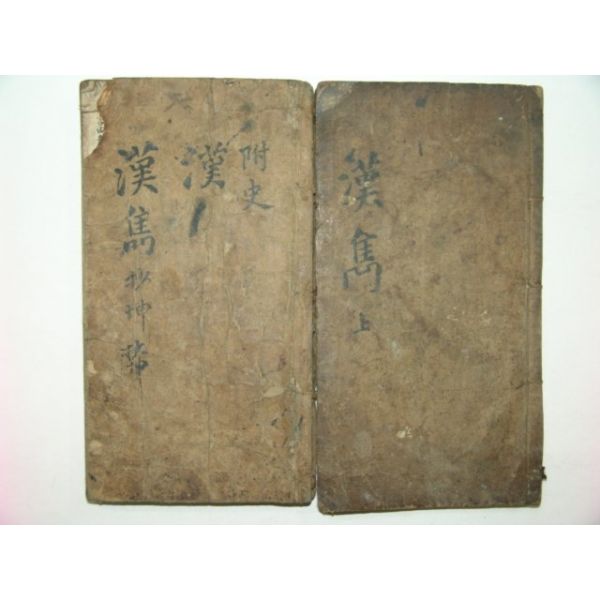 漢雋上
附史
漢
漢雋抄坤